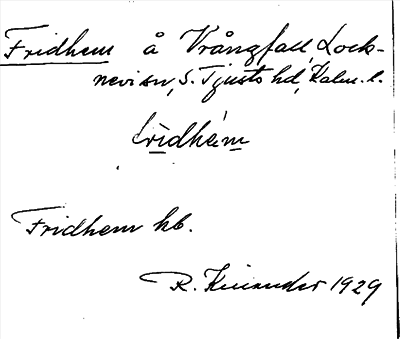 Fridhem å Vrångfall, Lock-
nevi sn, S. Tjusts hd, Kalm. l.
fridhem
Fridhem kb.
R. Kinander 1929